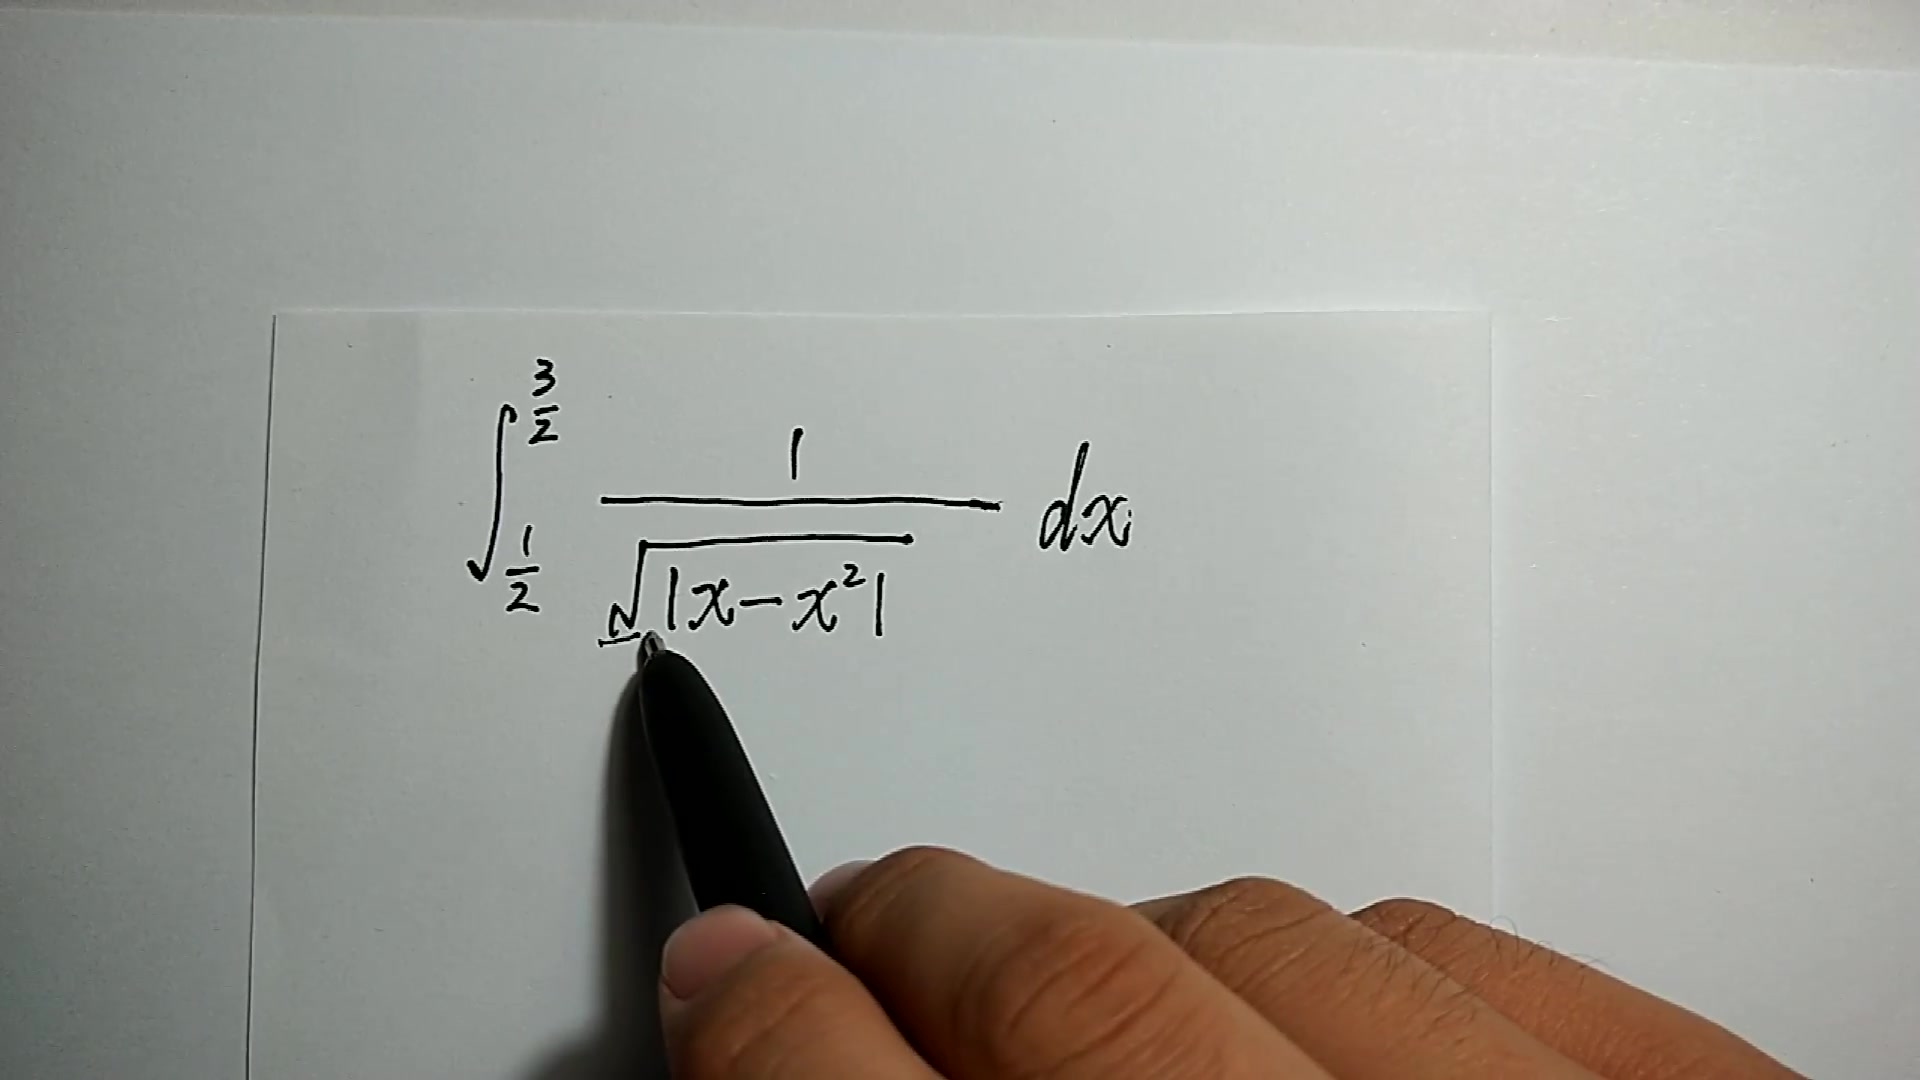 ∫_{1/2}^{3/2} 1/√|x−x²| dx